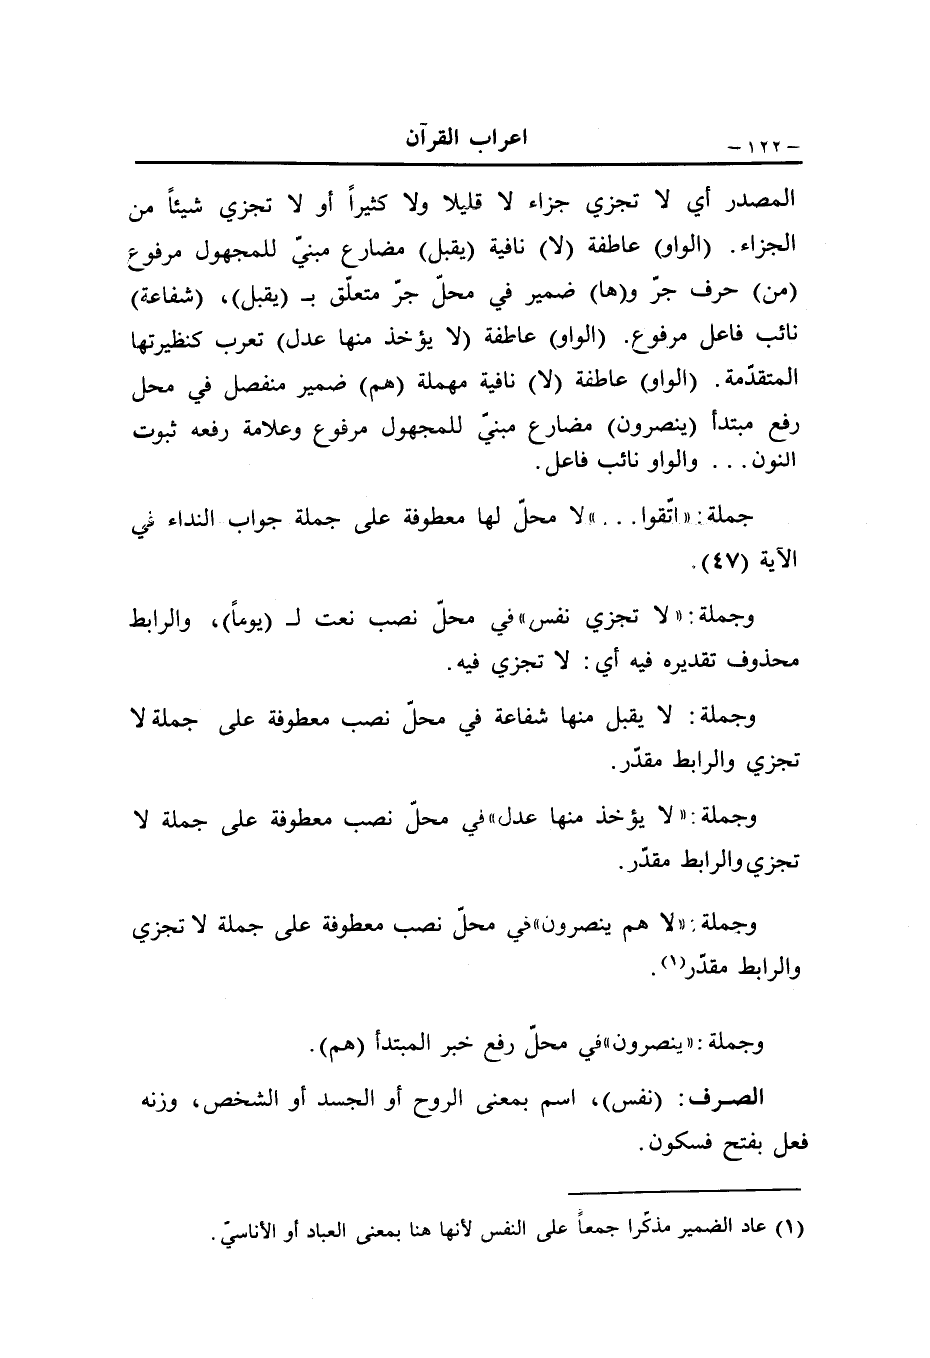 اعراب القرآن
– ١٢٢ –
المصدر أي لا تجزي جزاء لا قليلا ولا كثيراً أو لا تجزي شيئاً من
الجزاء. (الواو) عاطفة (لا) نافية (يقبل) مضارع مبنيّ للمجهول مرفوع
(من) حرف جرّ و(ها) ضمير في محلّ جرّ متعلّق بـ (يقبل)، (شفاعة)
نائب فاعل مرفوع. (الواو) عاطفة (لا يؤخذ منها عدل) تعرب كنظيرتها
المتقدّمة. (الواو) عاطفة (لا) نافية مهملة (هم) ضمير منفصل في محل
رفع مبتدأ (ينصرون) مضارع مبنيّ للمجهول مرفوع وعلامة رفعه ثبوت
النون... والواو نائب فاعل.
جملة: «اتّقوا...» لا محلّ لها معطوفة على جملة جواب النداء في
الآية (٤٧).
وجملة: «لا تجزي نفس» في محلّ نصب نعت لـ (يوماً)، والرابط
محذوف تقديره فيه أي: لا تجزي فيه.
وجملة: لا يقبل منها شفاعة في محلّ نصب معطوفة على جملة لا
تجزي والرابط مقدّر.
وجملة: «لا يؤخذ منها عدل» في محلّ نصب معطوفة على جملة لا
تجزي والرابط مقدّر.
وجملة: «لا هم ينصرون» في محلّ نصب معطوفة على جملة لا تجزي
والرابط مقدّر(١).
وجملة: «ينصرون» في محلّ رفع خبر المبتدأ (هم).
الصرف: (نفس)، اسم بمعنى الروح أو الجسد أو الشخص، وزنه
فعل بفتح فسكون.
(١) عاد الضمير مذكّرا جمعاً على النفس لأنها هنا بمعنى العباد أو الأناسيّ.